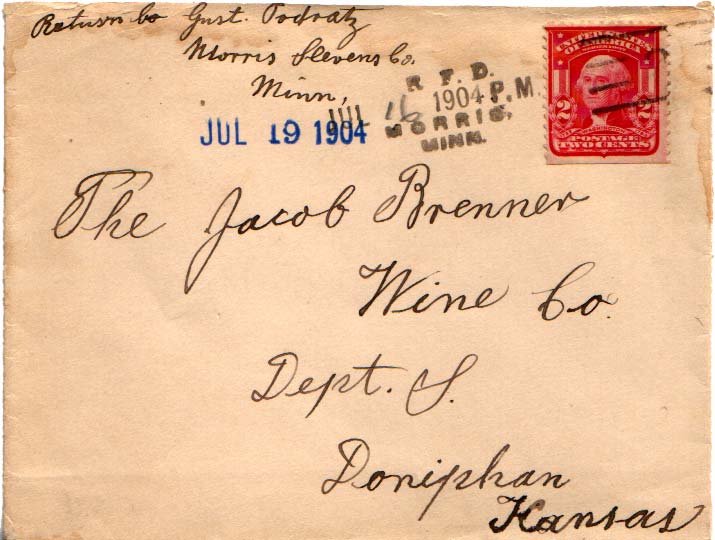 Return to Gust. Podratz
Morris Stevens Co.
Minn,
JUL 19 1904
R. F. D.
JUL 16 1904 P.M.
MORRIS,
MINN.
UNITED STATES
OF AMERICA
2 2
WASHINGTON
POSTAGE
TWO CENTS
The Jacob Brenner
Wine Co.
Dept. S.
Doniphan
Kansas